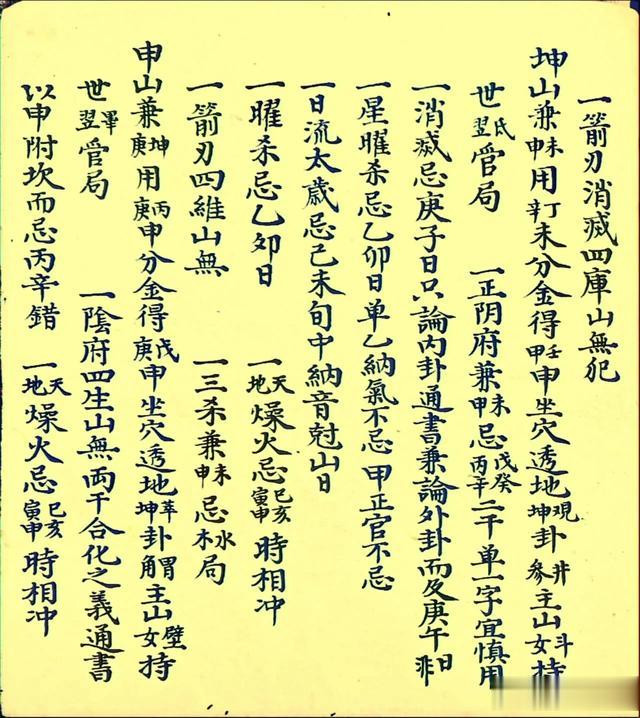 一箭刃消滅四庫山無犯
坤山兼未申用丁辛未分金得壬甲申坐穴透地觀坤卦井參主山斗女持
世氐翌管局 一正阴府兼未申忌戊癸丙辛二干单一字宜慎用
一消滅忌庚子日只論内卦通書兼論外卦而及庚午日非
一星曜杀忌乙卯日单乙納氣不忌甲正官不忌
一日流太歲忌己未旬中納音尅山日
一曜杀忌乙卯日 一天地燥火忌巳亥寅申時相冲
一箭刃四维山無 一三杀兼未申忌水木局
申山兼坤庚用丙庚申分金得戊庚申坐穴透地萃坤卦胃觜主山壁女持
世畢翌管局 一陰府四生山無両干合化之義通書
以申附坎而忌丙辛錯 一天地燥火忌巳亥寅申時相冲